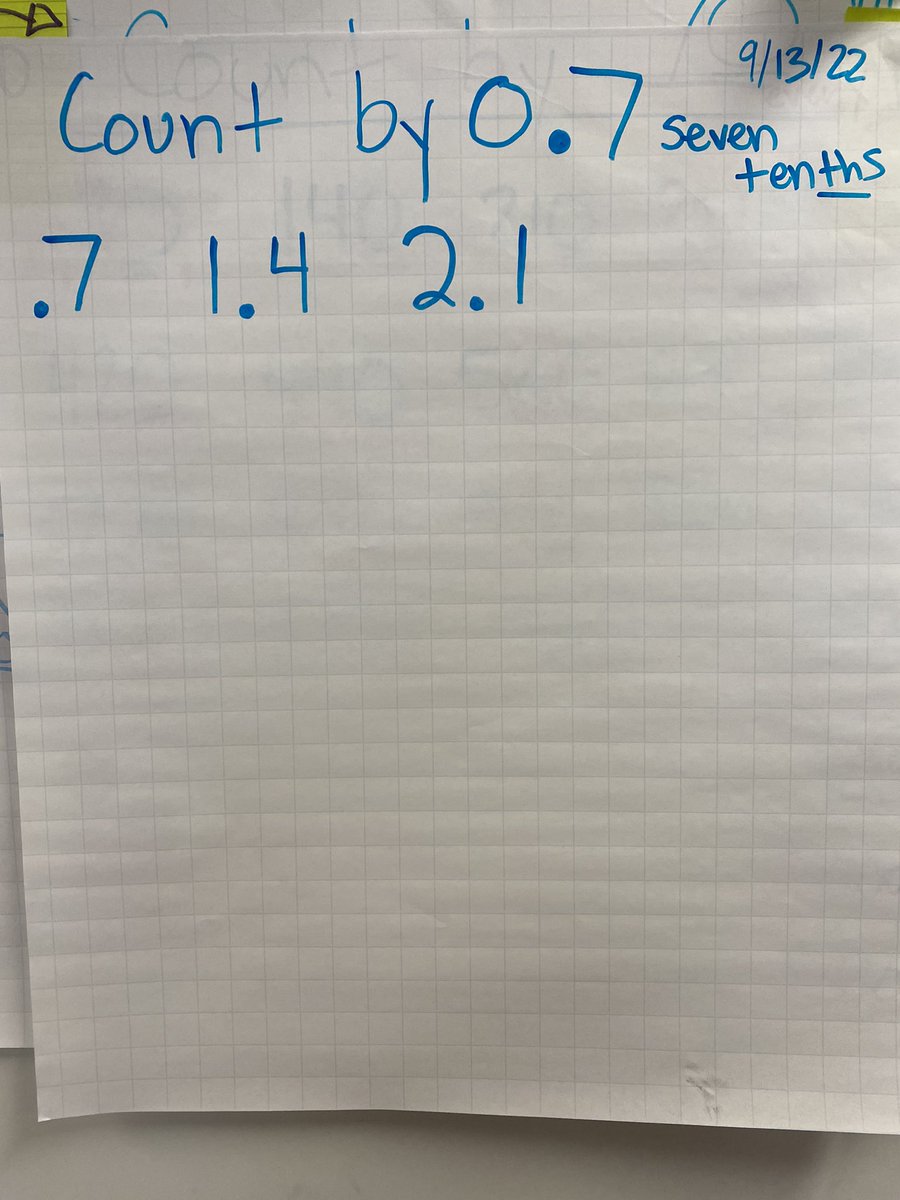 9/13/22
Count by 0.7 seven
tenths
.7 1.4 2.1